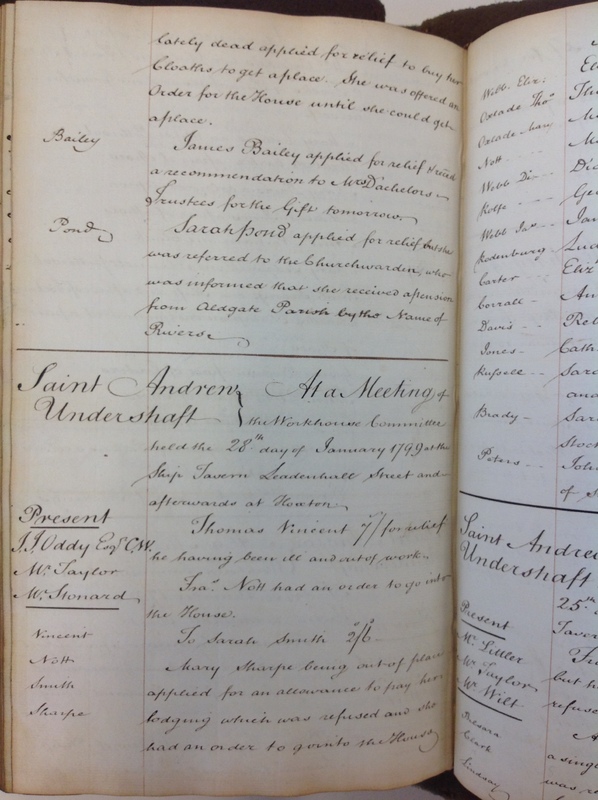 lately dead applied for relief to buy her
Cloaths to get a place. She was offered an
Order for the House until she could get
a place.
Bailey
James Bailey applied for relief & recd
a recommendation to Mrs Dachelors
Trustees for the Gift tomorrow.
Pond
Sarah Pond applied for relief but she
was referred to the Churchwarden, who
was informed that she received a pension
from Aldgate Parish by the Name of
Rivers.
Saint Andrew
Undershaft
At a Meeting of
the Workhouse Committee
held the 28th day of January 1799 at the
Ship Tavern Leadenhall Street and
afterwards at Hoxton
Present
J.J. Oddy Esqr C.W.
Mr Taylor
Mr Stonard
Thomas Vincent 7/ for relief
he having been ill and out of work.
Fras Nott had an order to go into
the House.
Vincent
Nott
Smith
Sharpe
To Sarah Smith 2/6
Mary Sharpe being out of place
applied for an allowance to pay her
lodging which was refused and she
had an order to go into the House
Webb Eliz:
Oxtade Thos
Oxtade
Nott
Webb Di
Rolfe
Webb Jas
Rodenburg
Carter
Corrall
Davis
Jones
Russell
Brady
Peters
Eliz
Saint Andre
Undershaft
25th
Present
Mr Littler
Mr Taylor
Mr Wilt
Taver
but h
refuse
Clark
Lindsay
a single
was re